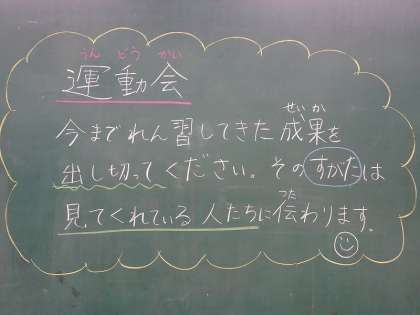 うんどうかい
運動会
せいか
今までれん習してきた成果を
出し切ってください。そのすがたは
つた
見てくれている人たちに伝わります。